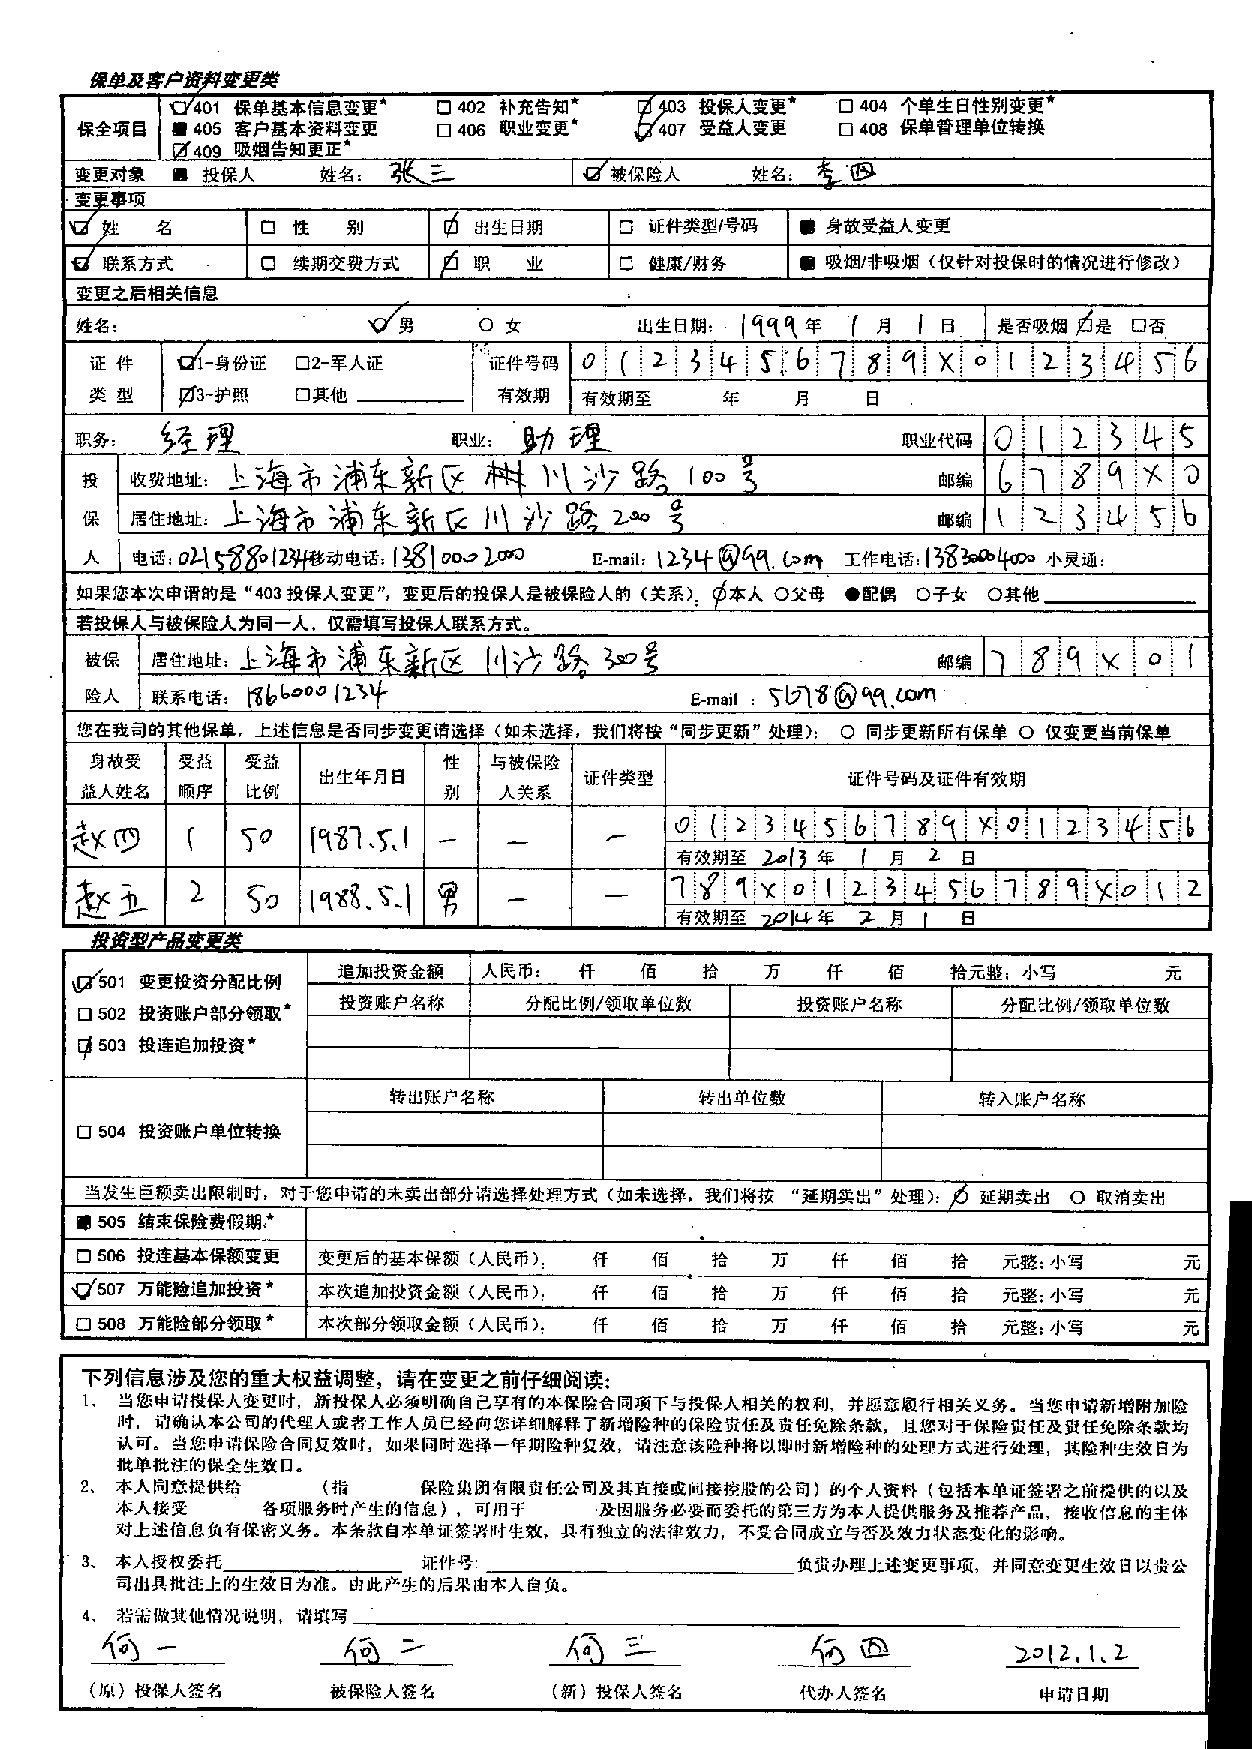 保单及客户资料变更类
保全项目 ☑401 保单基本信息变更* ☐402 补充告知* ☑403 投保人变更* ☐404 个单生日性别变更*
■405 客户基本资料变更 ☐406 职业变更* ☑407 受益人变更 ☐408 保单管理单位转换
☑409 吸烟告知更正*
变更对象 ■ 投保人 姓名: 张三 ☑被保险人 姓名: 李四
变更事项
☑姓 名 ☐ 性 别 ☑ 出生日期 ☐ 证件类型/号码 ■ 身故受益人变更
☑ 联系方式 ☐ 续期交费方式 ☑ 职 业 ☐ 健康/财务 ■ 吸烟/非吸烟(仅针对投保时的情况进行修改)
变更之后相关信息
姓名: ☑男 ○女 出生日期: 1999年 1月 1日 是否吸烟 ☑是 ☐否
证件 ☑1-身份证 ☐2-军人证 证件号码 0123456789X0123456
类型 ☑3-护照 ☐其他 有效期 有效期至 年 月 日
职务: 经理 职业: 助理 职业代码 012345
投 收费地址: 上海市浦东新区 川沙路100号 邮编 6789X0
保 居住地址: 上海市浦东新区川沙路200号 邮编 123456
人 电话: 02158801234 移动电话: 13810002000 E-mail: 1234@qq.com 工作电话: 13830004000 小灵通:
如果您本次申请的是“403投保人变更”, 变更后的投保人是被保险人的(关系): ☑本人 ○父母 ●配偶 ○子女 ○其他
若投保人与被保险人为同一人, 仅需填写投保人联系方式。
被保 居住地址: 上海市浦东新区川沙路300号 邮编 789X01
险人 联系电话: 18660001234 E-mail : 5678@qq.com
您在我司的其他保单, 上述信息是否同步变更请选择(如未选择, 我们将按“同步更新”处理): ○ 同步更新所有保单 ○ 仅变更当前保单
身故受 受益 受益 出生年月日 性 与被保险 证件类型 证件号码及证件有效期
益人姓名 顺序 比例 别 人关系
赵四 1 50 1987.5.1 — — — 0123456789X0123456
有效期至 2013年 1月 2日
赵五 2 50 1988.5.1 男 — — 789X0123456789X012
有效期至 2014年 2月 1日
投资型产品变更类
☑501 变更投资分配比例 追加投资金额 人民币: 仟 佰 拾 万 仟 佰 拾元整: 小写 元
☐502 投资账户部分领取* 投资账户名称 分配比例/领取单位数 投资账户名称 分配比例/领取单位数
☑503 投连追加投资*
转出账户名称 转出单位数 转入账户名称
☐504 投资账户单位转换
当发生巨额卖出限制时, 对于您申请的未卖出部分请选择处理方式(如未选择, 我们将按 “延期卖出”处理): ☑ 延期卖出 ○ 取消卖出
■505 结束保险费假期*
☐506 投连基本保额变更 变更后的基本保额(人民币): 仟 佰 拾 万 仟 佰 拾 元整: 小写 元
☑507 万能险追加投资* 本次追加投资金额(人民币): 仟 佰 拾 万 仟 佰 拾 元整: 小写 元
☐508 万能险部分领取* 本次部分领取金额(人民币): 仟 佰 拾 万 仟 佰 拾 元整: 小写 元
下列信息涉及您的重大权益调整, 请在变更之前仔细阅读:
1、 当您申请投保人变更时, 新投保人必须明确自己享有的本保险合同项下与投保人相关的权利, 并愿意履行相关义务。当您申请新增附加险
时, 请确认本公司的代理人或者工作人员已经向您详细解释了新增险种的保险责任及责任免除条款, 且您对于保险责任及责任免除条款均
认可。当您申请保险合同复效时, 如果同时选择一年期险种复效, 请注意该险种将以即时新增险种的处理方式进行处理, 其险种生效日为
批单批注的保全生效日。
2、 本人同意提供给 (指 保险集团有限责任公司及其直接或间接控股的公司)的个人资料(包括本单证签署之前提供的以及
本人接受 各项服务时产生的信息), 可用于 及因服务必要而委托的第三方为本人提供服务及推荐产品, 接收信息的主体
对上述信息负有保密义务。本条款自本单证签署时生效, 具有独立的法律效力, 不受合同成立与否及效力状态变化的影响。
3、 本人授权委托 证件号: 负责办理上述变更事项, 并同意变更生效日以贵公
司出具批注上的生效日为准。由此产生的后果由本人自负。
4、 若需做其他情况说明, 请填写
何一 何二 何三 何四 2012.1.2
(原)投保人签名 被保险人签名 (新)投保人签名 代办人签名 申请日期